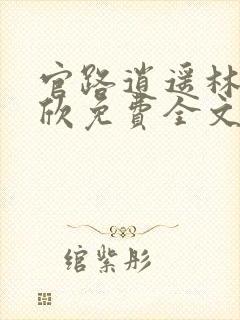 官路逍遥林
欣免費全文
绾紫彤